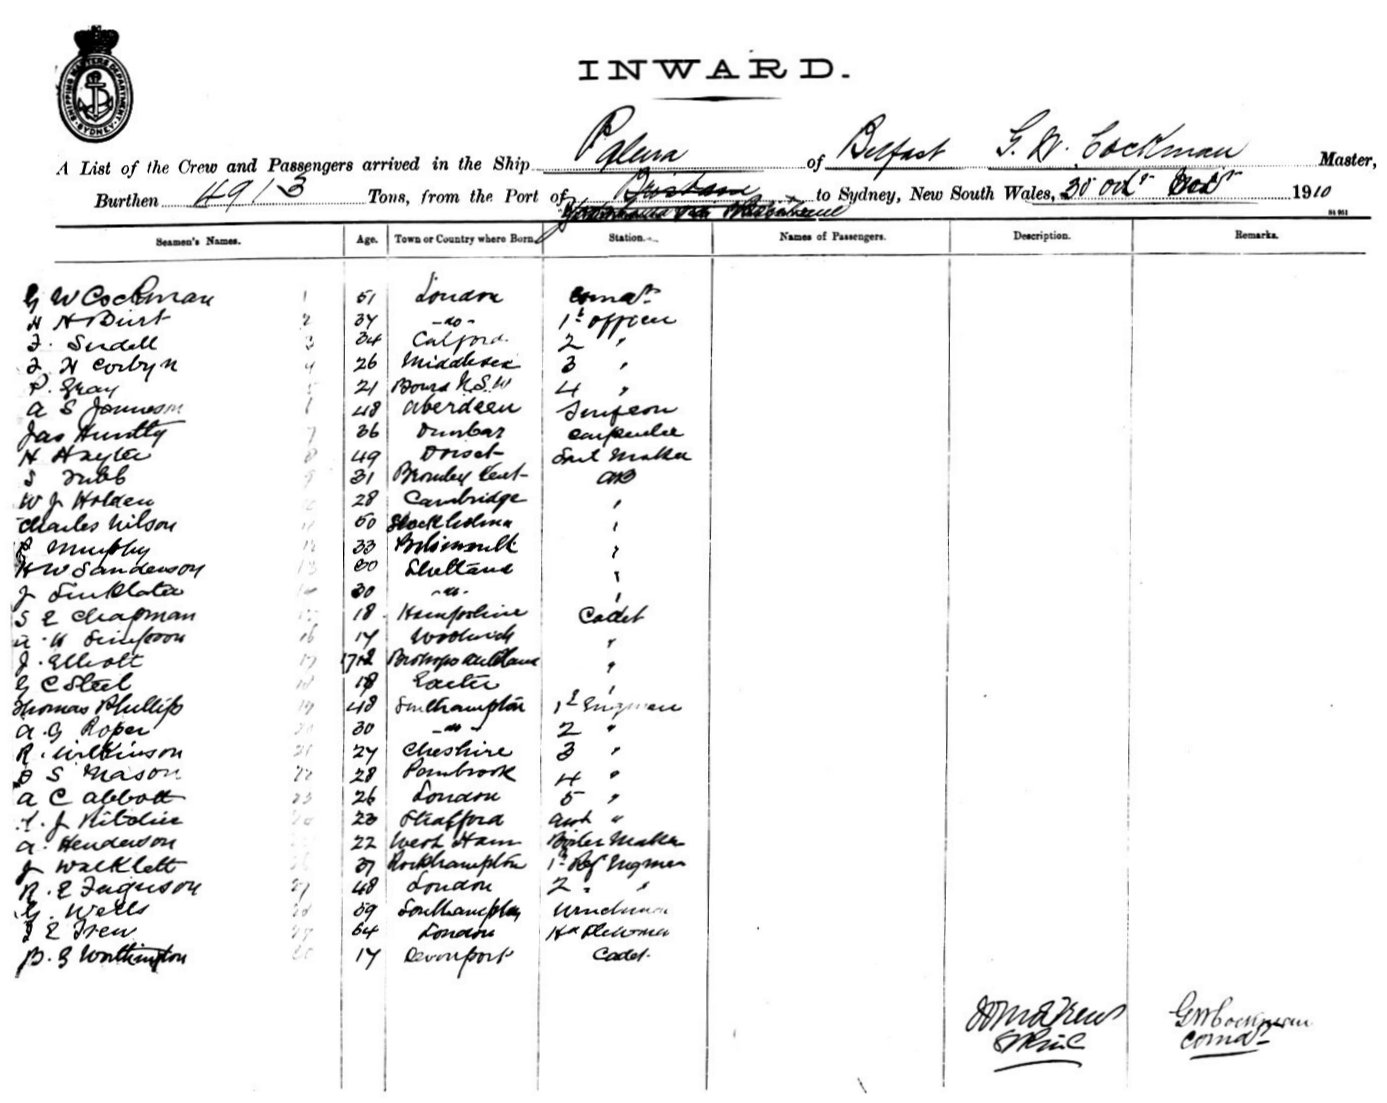 SHIPPING MASTERS DEPARTMENT SYDNEY
INWARD.
A List of the Crew and Passengers arrived in the Ship Palma of Belfast G. W. Cockman Master,
Burthen 4913 Tons, from the Port of Brisbane to Sydney, New South Wales, 30 Oct 1910
Seamen's Names. Age. Town or Country where Born. Station. Names of Passengers. Description. Remarks.
G W Cockman 1 51 London Comdr
H H Burt 2 34 -do- 1st officer
J. Sudell 3 34 Catford 2 "
J H Corbyn 4 26 Middlesex 3 "
P. Gray 5 21 N.S.W 4 "
A S 48 Aberdeen Surgeon
Jas Huntly 7 36 Dunbar Carpenter
H Hayter 8 49 Dorset Sail Maker
S Tubb 9 31 Bromley Kent AB
W J Holden 28 Cambridge "
Charles Nilson 50 Stockholm "
P Murphy 12 33 Portsmouth "
H W Sanderson 13 30 Shetland "
J Sinklater 30 -do- "
S E Chapman 18 Hampshire Cadet
H Simpson 16 17 Woolwich "
J. Elliott 17 Bishops Auckland "
G C Steel 18 18 Exeter "
Thomas Phillips 19 48 Southampton 1st Engineer
A. G Roper 30 -do- 2 "
R. Wilkinson 21 27 Cheshire 3 "
S Mason 22 28 Pembrook 4 "
A C Abbott 23 26 London 5 "
J Ritchie 23 Stratford "
A. Henderson 22 West Ham Boiler Maker
J Walklett 37 Rockhampton 1st Ref Engineer
R. E Ferguson 27 48 London 2 " "
G. Wells 28 59 Southampton Winchman
E Trew 64 London
B. G Worthington 17 Devonport Cadet.
G W Cockman
Comdr